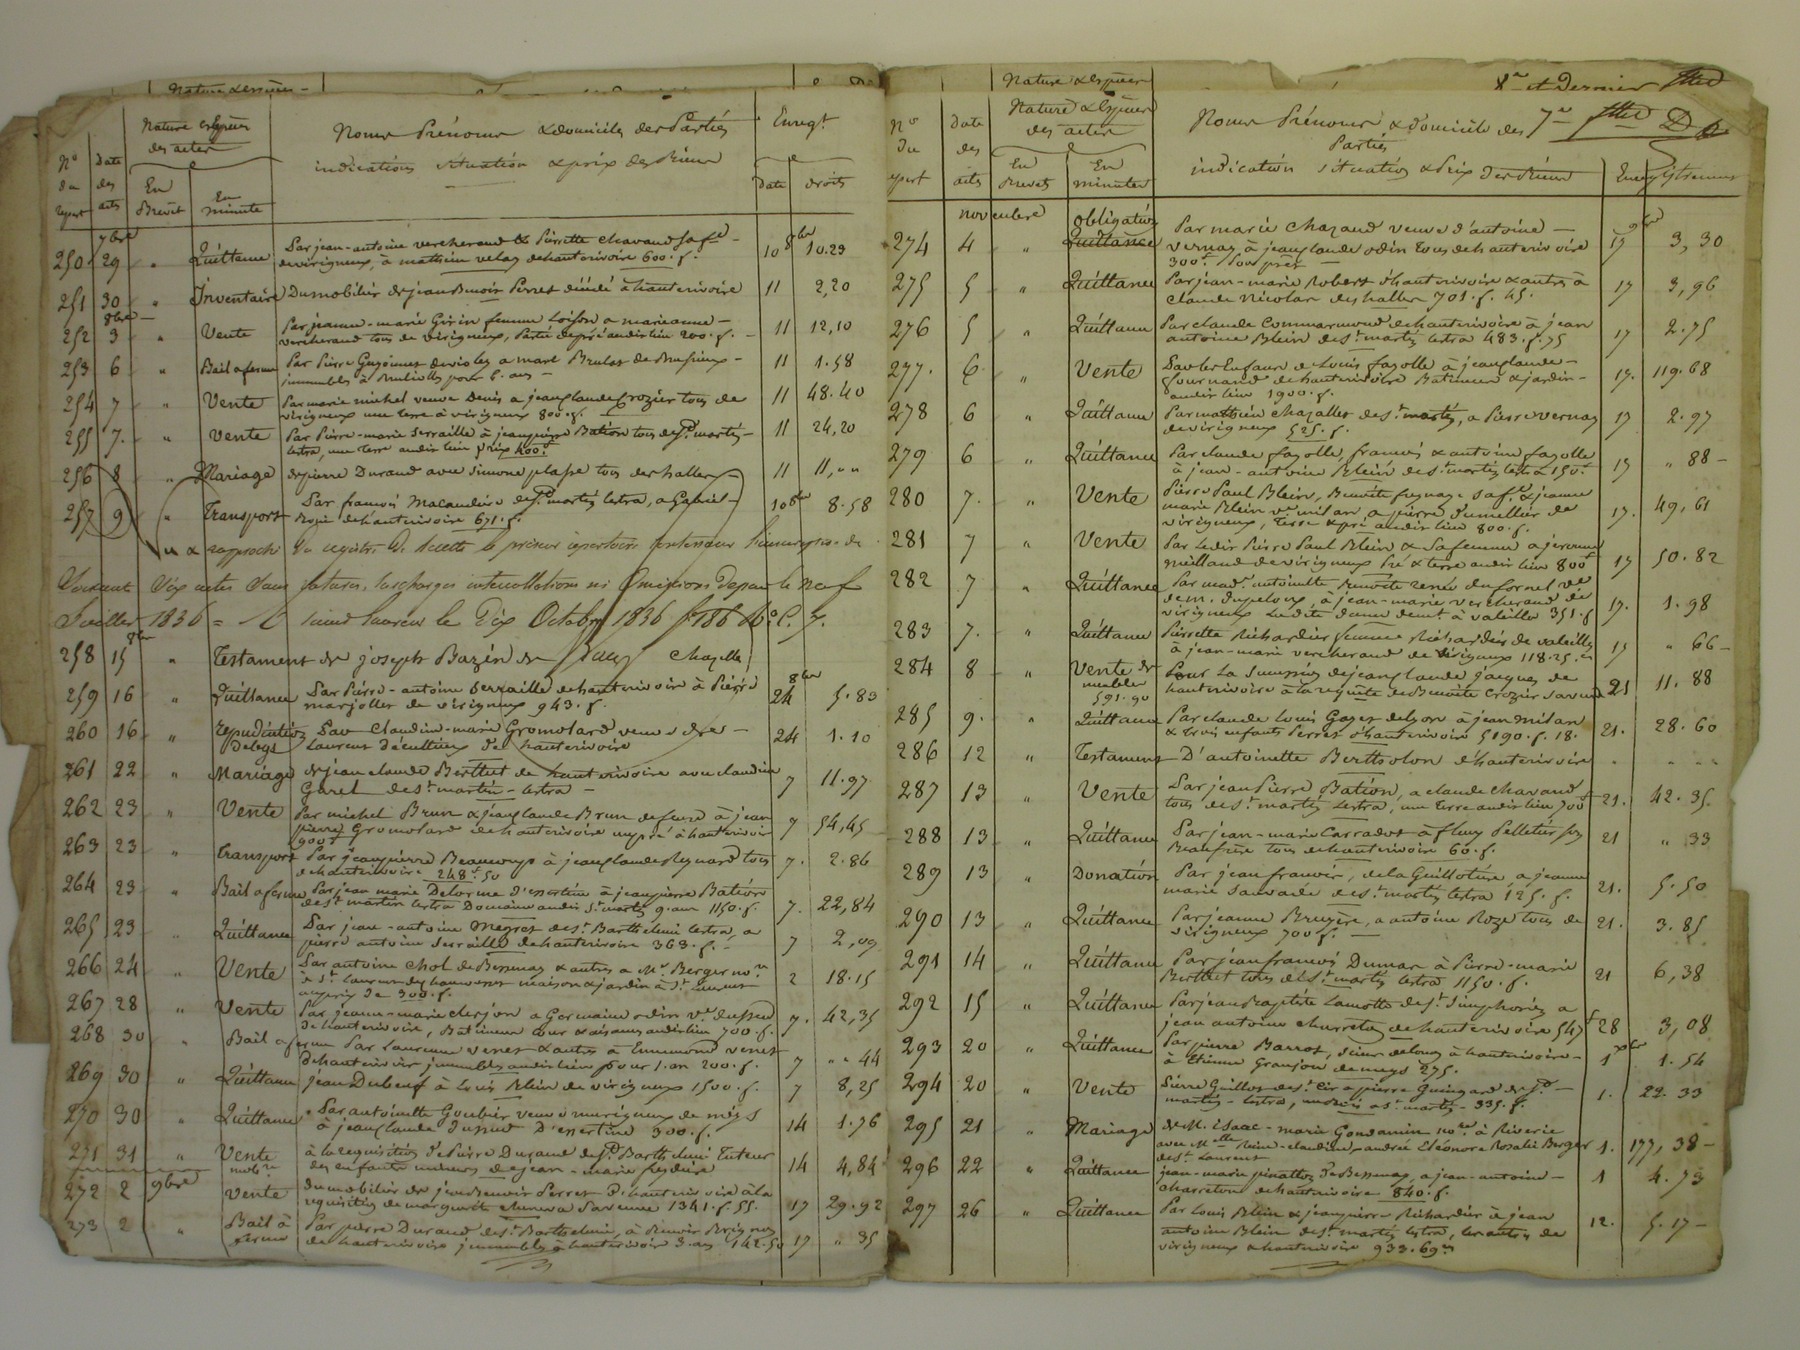 Nature & Espèces
Noms Prénoms & domicile des Parties
Enregt.
des actes
indications situation & prix des Biens
N° du repert
Date des actes
En Brevet
En minute
Date
droits
7bre
8bre
250 29 " Quittance Par jean-antoine vercherand & Pierrette Chavand sa fe
de virigneux, à mathieu velay de hauterivoire 600. f. 10 10.29
251 30 " Inventaire Du mobilier de jean Benoit Perret décédé à hauterivoire 11 2,20
8bre
252 3 " Vente Par jeanne-marie Girin femme Loison a marieanne
vercherand tous de virigneux, Partie de pré audit lieu 200. f. 11 12,10
253 6 " Bail a ferme Par Pierre Guyonnet de violey a marc Brulas de Brussieux
immeubles à pour 6. ans 11 1.58
254 7 " Vente Par marie michel veuve Denis a jean claude Crozier tous de
virigneux une terre à virigneux 800. f. 11 48.40
255 7. " Vente Par Pierre-marie Serraille à jean pierre Bation tous de St martin
lestra, une terre audit lieu prix 400f 11 24,20
256 8 " Mariage de pierre Durand avec simone plasse tous de haller 11 11, " "
257 9 " Transport Par francois Macaudière de St martin lestra, a Gabriel
de hauterivoire 671. f. 10 8bre 8.58
rapproché du registre de recette le présent répertoire contenant l'inscription de
soixante dix actes sans ratures, surcharges intercallations ni omissions depuis le neuf
Juillet 1836 = St laurent le Dix Octobre 1836 f. 186 Ro C. 7.
8bre
258 15 " Testament de joseph Bazin de chazelle
259 16 " Quittance Par Pierre-antoine Serraille de hauterivoire à Pierre
marjollet de virigneux 943. f. 8bre 24 5.83
260 16 " repudiation Par Claudine-marie Gromolard veuve de
De legs laurent de hauterivoire 24 1.10
261 22 " Mariage de jean claude Berthet de hauterivoire avec claudine
Garel de St martin-lestra 7 11.97
262 23 " Vente Par michel Brun & jean claude Brun de à jean
pierre Gromolard de hauterivoire un pré à hauterivoire
900 f 7 54,45
263 23 " Transport Par jean pierre Beaucoup à jean claude Reynard tous
de hauterivoire 248f.50 7. 2.86
264 23 " Bail a ferme Par jean marie Delorme d'essertine à jean pierre Bation
de St martin lestra Domaine audit St martin 9. ans 1150. f. 7. 22,84
265 23 " Quittance Par jean-antoine Megret de St Barthelemi lestra, a
pierre antoine Serraille de hauterivoire 363. f. 7 2,09
266 24 " Vente Par antoine Chol de Bessenay & autres a Mr Berger nore
à St Laurent de chamousset maison & jardin à St
au prix de 300. f. 2 18.15
267 28 " Vente Par jeanne-marie clerjon a Germaine odin ve
de hauterivoire, Batiments cour & aisances audit lieu 700. f. 7. 42,35
268 30 " Bail a ferme Par Laurence venet & autres à Ennemond venet
d'hauterivoire immeubles audit lieu pour 1. an 200. f. 7 " " 44
269 30 " Quittance jean Dubeuf à Louis Blein de virigneux 1500. f. 7 8,25
270 30 " Quittance Par antoinette Goubier veuve murigneux de meys
à jean claude d'essertine 300. f. 14 1.76
271 31 " Vente à la réquisition de Pierre Durand de St Barthelemi Tuteur
mobre des enfants mineurs de jean-marie 14 4,84
272 2 9bre Vente du mobilier de jean Benoit Perret d'hauterivoire à la
réquisition de marguerite sa veuve 1341. f. 55. 17 29.92
273 2 " Bail à ferme Par pierre Durand de St Barthelemi, à Benoit
de hauterivoire immeubles à hauterivoire 3. ans 142.50 17 " 35
8e et Dernier
7e
Nature & Espèces
des actes
N° du repert
Date des actes
En Brevets
En minutes
Noms Prénoms & domicile des Parties
indication situation & Prix des Biens
Enregistrement
novembre
9bre
274 4 " obligation Par marie Chazaud veuve d'antoine
Quittance vernay à jean claude odin tous de hauterivoire
300f. Pour prêt 17 3,30
275 5 " Quittance Par jean-marie Robert d'hauterivoire & autres à
Claude Nicolas des halles 701. f. 45. 17 3,96
276 5 " Quittance Par claude Commarmond de hauterivoire à jean
antoine Blein de St martin lestra 483. f. 75 17 2.75
277. 6 " Vente Par les Enfans de Louis fayolle à jean claude
fournand de hauterivoire Batimens & jardin
audit lieu 1900. f. 17. 119.68
278 6 " Quittance Par mathieu Chazalles de St martin, a Pierre vernay
de virigneux 525. f. 17 2.97
279 6 " Quittance Par claude fayolle, francois & antoine fayolle
à jean-antoine Blein de St martin lestra 150f 17 " 88
280 7. " Vente Pierre Paul Blein, Benoite sa fe & jeanne
marie Blein ve milan a pierre Dumellier de
virigneux, Terre & pré audit lieu 800. f. 17. 49,61
281 7 " Vente Par Ledit Pierre Paul Blein & sa femme a jerome
meilland de virigneux Pré & terre audit lieu 800f 17 50.82
282 7 " Quittance Par made antoinette Benoite renée dufornel ve
de m. dupeloux, à jean-marie vercherand de
virigneux Ladite dame demt à valeille 351. f 17. 1.98
283 7. " Quittance Pierrette Richardier femme Richardier de valeille
à jean-marie vercherand de virigneux 118.25.c 17 " 66
284 8 " Vente de meubles Pour la succession de jean claude jacques de
591.90 hauterivoire à la requête de Benoite Crozier sa veuve 21 11.88
285 9. " Quittance Par claude Louis Gayet de Lyon à jean Milan
& trois enfants Perret d'hauterivoire 5190. f. 18. 21. 28.60
286 12 " Testament D'antoinette Bertholon d'hauterivoire " " "
287 13 " Vente Par jean Pierre Bation, a claude chavand
tous de St martin lestra, une terre audit lieu 700f 21. 42.35
288 13 " Quittance Par jean-marie Carradot à fleury Pelletier son
Beaufrère tous de hauterivoire 60. f. 21 " 33
289 13 " Donation Par jean francois, de la Guillotière a jeanne
marie Sauvade de St martin lestra 125. f. 21. 5.50
290 13 " Quittance Par jeanne Bruyère, a antoine Roze tous de
virigneux 700 f. 21. 3.85
291 14 " Quittance Par jean francois Dumas à Pierre-marie
Berthet tous de St martin lestra 1150. f. 21 6,38
292 15 " Quittance Par jean Baptiste Lamotte de St Simphorien a
jean antoine de hauterivoire 547f 28 3,08
293 20 " Quittance Par pierre Barrot, à hauterivoire
à Etienne Granjon de meys 275. Xbre 1 1.54
294 20 " Vente Pierre Guillot de St Cir a pierre Guingard de St
martin-lestra, a St martin 335. f. 1. 22.33
295 21 " Mariage de M. Isaac-marie Gondamin nore à Riverie
avec Melle claudine andrée Eléonore Rosalie Berger
de St Laurent 1. 177,38
296 22 " Quittance jean-marie pinatton de Bessenay, a jean-antoine
Charreton de hauterivoire 840. f. 1 4.73
297 26 " Quittance Par Louis Blein & jean pierre Richardier à jean
antoine Blein de St martin lestra, les autres de
virigneux & hauterivoire 933.69c 12. 5.17